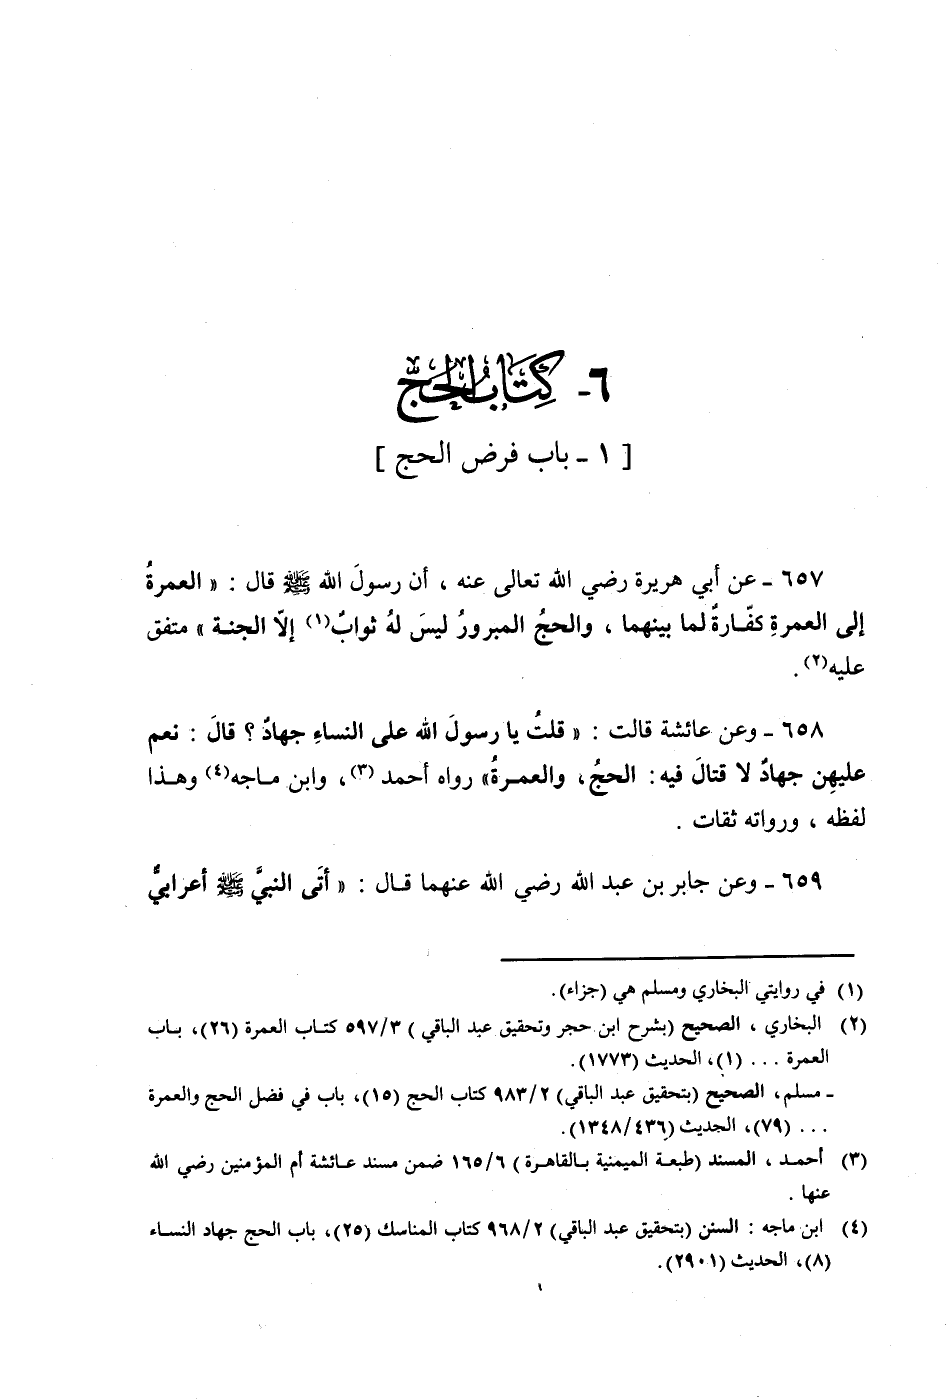 ٦- كِتَابُ الحَجّ
[ ١ - باب فرض الحج ]
٦٥٧ - عن أبي هريرة رضي الله تعالى عنه ، أن رسولَ الله ﷺ قال : « العمرةُ
إلى العمرةِ كفّارةٌ لما بينهما ، والحجُ المبرورُ ليسَ لهُ ثوابٌ(١) إلّا الجنة » متفق
عليه(٢) .
٦٥٨ - وعن عائشة قالت : « قلتُ يا رسولَ الله على النساءِ جهادٌ ؟ قالَ : نعم
عليهِن جهادٌ لا قتالَ فيه : الحجُ ، والعمرةُ» رواه أحمد (٣) ، وابن ماجه(٤) وهذا
لفظه ، ورواته ثقات .
٦٥٩ - وعن جابر بن عبد الله رضي الله عنهما قال : « أتَى النبيَّ ﷺ أعرابيٌّ
(١) في روايتي البخاري ومسلم هي (جزاء).
(٢) البخاري ، الصحيح (بشرح ابن حجر وتحقيق عبد الباقي ) ٥٩٧/٣ كتاب العمرة (٢٦)، باب
العمرة . . . (١)، الحديث (١٧٧٣).
- مسلم، الصحيح (بتحقيق عبد الباقي) ٩٨٣/٢ كتاب الحج (١٥)، باب في فضل الحج والعمرة
. . . (٧٩)، الحديث (١٣٤٨/٤٣٦).
(٣) أحمد ، المسند (طبعة الميمنية بالقاهرة ) ١٦٥/٦ ضمن مسند عائشة أم المؤمنين رضي الله
عنها .
(٤) ابن ماجه : السنن (بتحقيق عبد الباقي) ٩٦٨/٢ كتاب المناسك (٢٥)، باب الحج جهاد النساء
(٨)، الحديث (٢٩٠١).
١